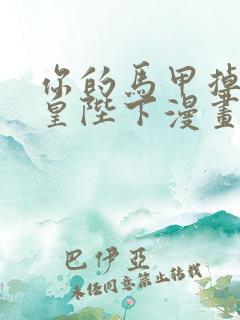 你的馬甲掉
皇陛下漫畫
巴伊亞
未經同意禁止轉載